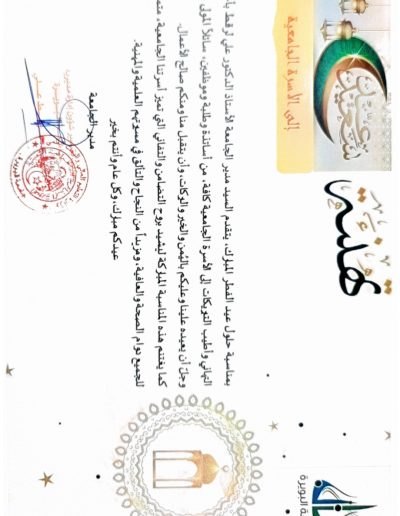 تهنئة
عيد سعيد
إلى الأسرة الجامعية
بمناسبة حلول عيد الفطر المبارك، يتقدم السيد مدير الجامعة الأستاذ الدكتور علي لرقط
التهاني وأطيب التبريكات إلى الأسرة الجامعية كافة، من أساتذة وطلبة وموظفين، سائلاً المولى
وجل أن يعيده علينا وعليكم باليُمن والخير والبركات، وأن يتقبل منا ومنكم صالح الأعمال.
كما يغتنم هذه المناسبة المباركة ليشيد بروح التضامن والتفاني التي تميز أسرتنا الجامعية،
للجميع دوام الصحة والعافية، ومزيداً من النجاح والتألق في مسيرتهم العلمية والمهنية.
عيدكم مبارك، وكل عام وأنتم بخير
مدير الجامعة
البويرة